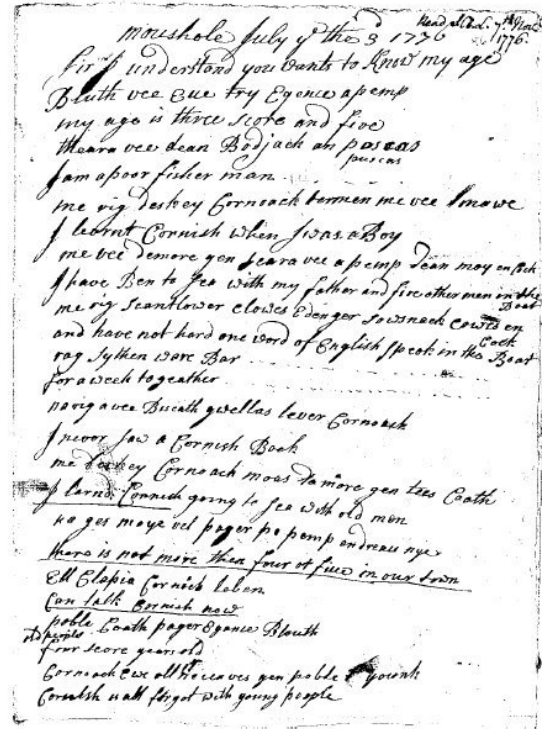 moushole July yᵉ the 3ᵈ 1776
Read at 7th Novr 1776.
Sir I understand you wants to Know my age
Bluth vee Eue try Egence a pemp
my age is three score and five
theara vee dean Bodjack an poscas
puscas
I am a poor fisher man
me rig deskey Cornoack termen me vee mawe
I learnt Cornish when I was a Boy
me vee demore gen seara vee a pemp dean moy en cock
I have Ben to sea with my father and five other men in the Boat
me rig scantlower clowes Edenger sowsnack cowes en cock
and have not hard one word of English speok in the Boat
rag sythen ware Bar
for a week togeather
na rig a vee Biscath gwellas lever Cornoack
I never saw a Cornish Book
me deskey Cornoack moas da more gen tees Coath
I larnd Cornish going to sea with old men
na ges moye vel pager po pemp en dreau nye
there is not more then four or five in our town
Ell Clapia Cornoack leben
Can talk Cornish now
poble Coath pager Egance Blouth
old people four score years old
Cornoack Ewe all ne ceaves gen poble younk
Cornish is all forgot with young people